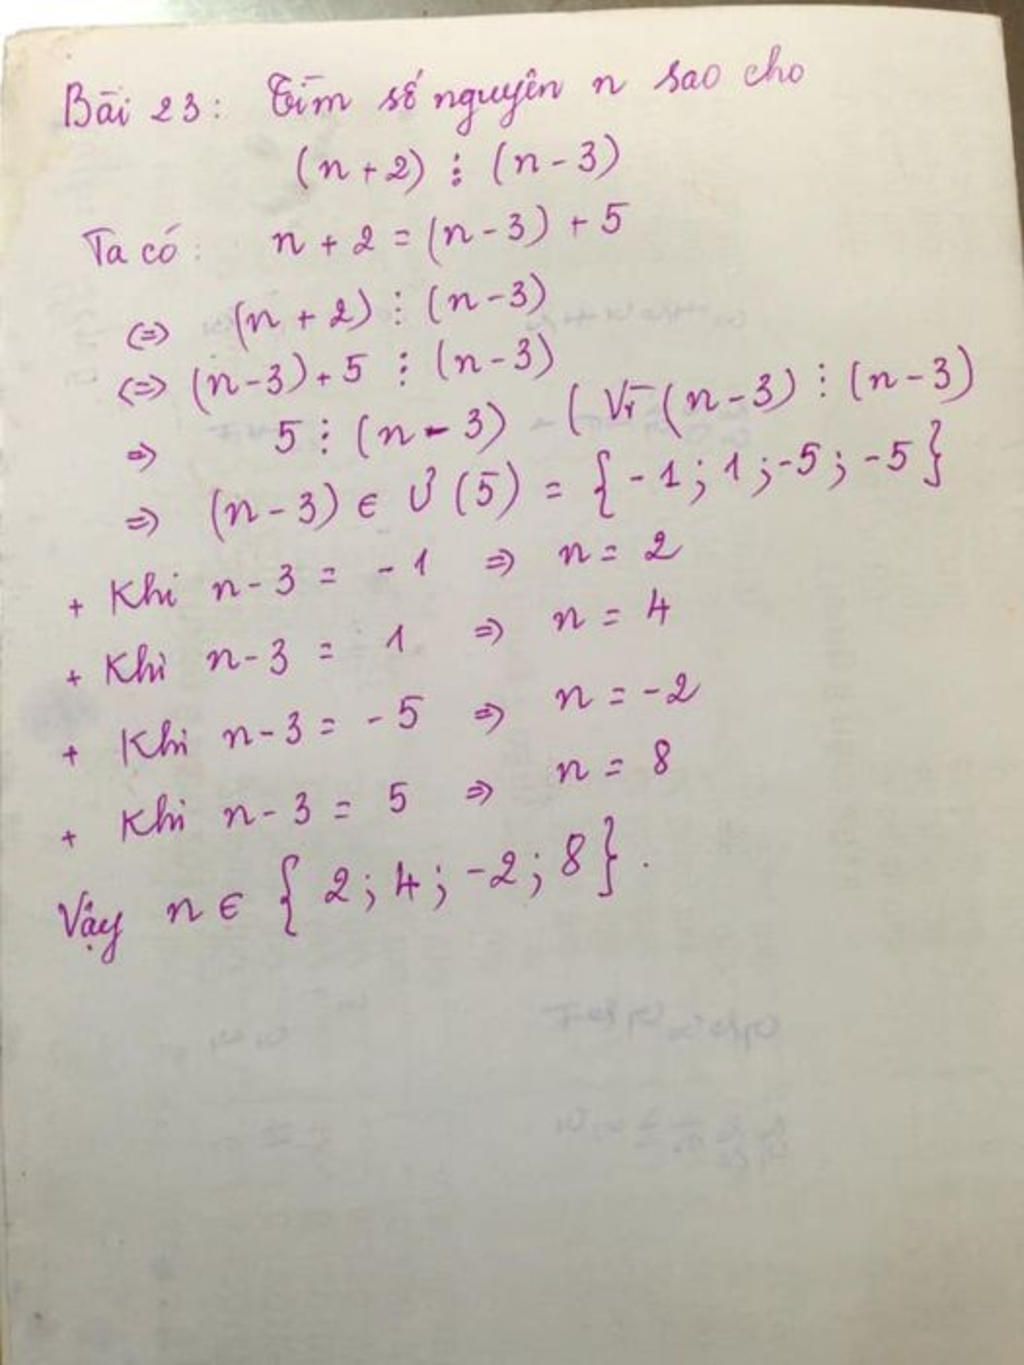 Bài 23: Tìm số nguyên n sao cho
(n + 2) ⋮ (n - 3)
Ta có: n + 2 = (n - 3) + 5
<=> (n + 2) ⋮ (n - 3)
<=> (n - 3) + 5 ⋮ (n - 3)
=> 5 ⋮ (n - 3) ( Vì (n - 3) ⋮ (n - 3)
=> (n - 3) ∈ Ư (5) = { - 1 ; 1 ; -5 ; -5 }
+ Khi n - 3 = - 1 => n = 2
+ Khi n - 3 = 1 => n = 4
+ Khi n - 3 = - 5 => n = -2
+ Khi n - 3 = 5 => n = 8
Vậy n ∈ { 2 ; 4 ; -2 ; 8 } .